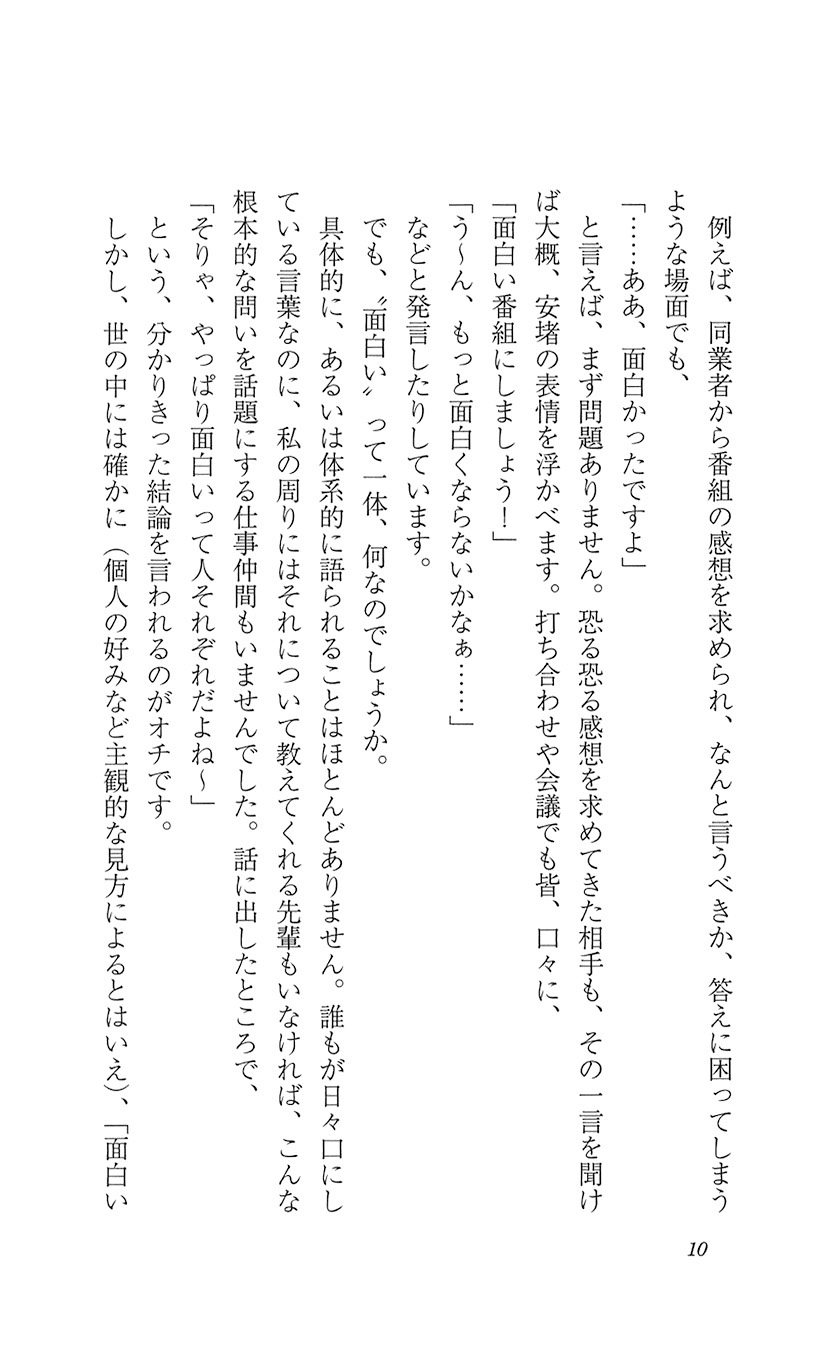 例えば、同業者から番組の感想を求められ、なんと言うべきか、答えに困ってしまう
ような場面でも、
「……ああ、面白かったですよ」
　と言えば、まず問題ありません。恐る恐る感想を求めてきた相手も、その一言を聞け
ば大概、安堵の表情を浮かべます。打ち合わせや会議でも皆、口々に、
「面白い番組にしましょう！」
「う〜ん、もっと面白くならないかなぁ……」
　などと発言したりしています。
　でも、〝面白い〟って一体、何なのでしょうか。
　具体的に、あるいは体系的に語られることはほとんどありません。誰もが日々口にし
ている言葉なのに、私の周りにはそれについて教えてくれる先輩もいなければ、こんな
根本的な問いを話題にする仕事仲間もいませんでした。話に出したところで、
「そりゃ、やっぱり面白いって人それぞれだよね〜」
　という、分かりきった結論を言われるのがオチです。
　しかし、世の中には確かに（個人の好みなど主観的な見方によるとはいえ）、「面白い
10